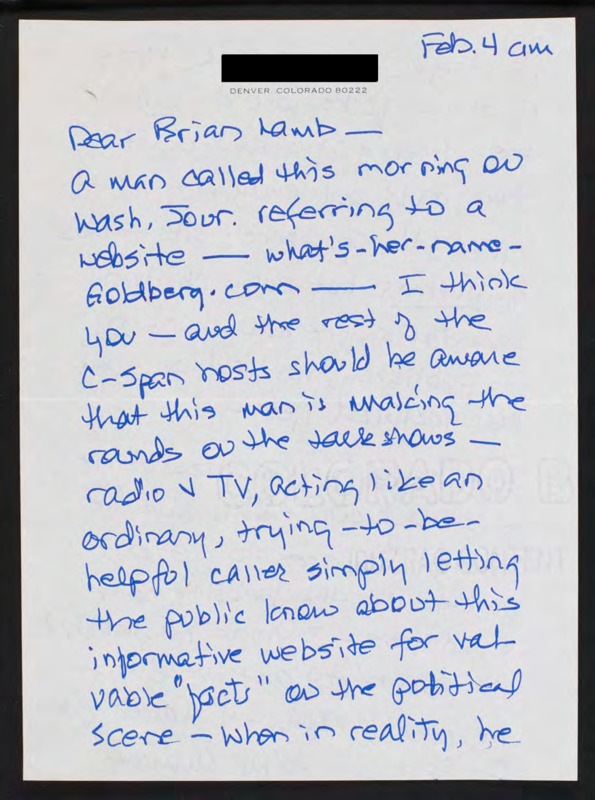 Feb. 4 am
DENVER COLORADO 80222
Dear Brian Lamb —
A man called this morning on
Wash. Jour. referring to a
website — what's-her-name-
Goldberg.com — I think
you — and the rest of the
C-Span hosts should be aware
that this man is making the
rounds on the talk shows —
radio & TV, acting like an
ordinary, trying-to-be-
helpful caller simply letting
the public know about this
informative website for val
vable "facts" on the political
scene — when in reality, he